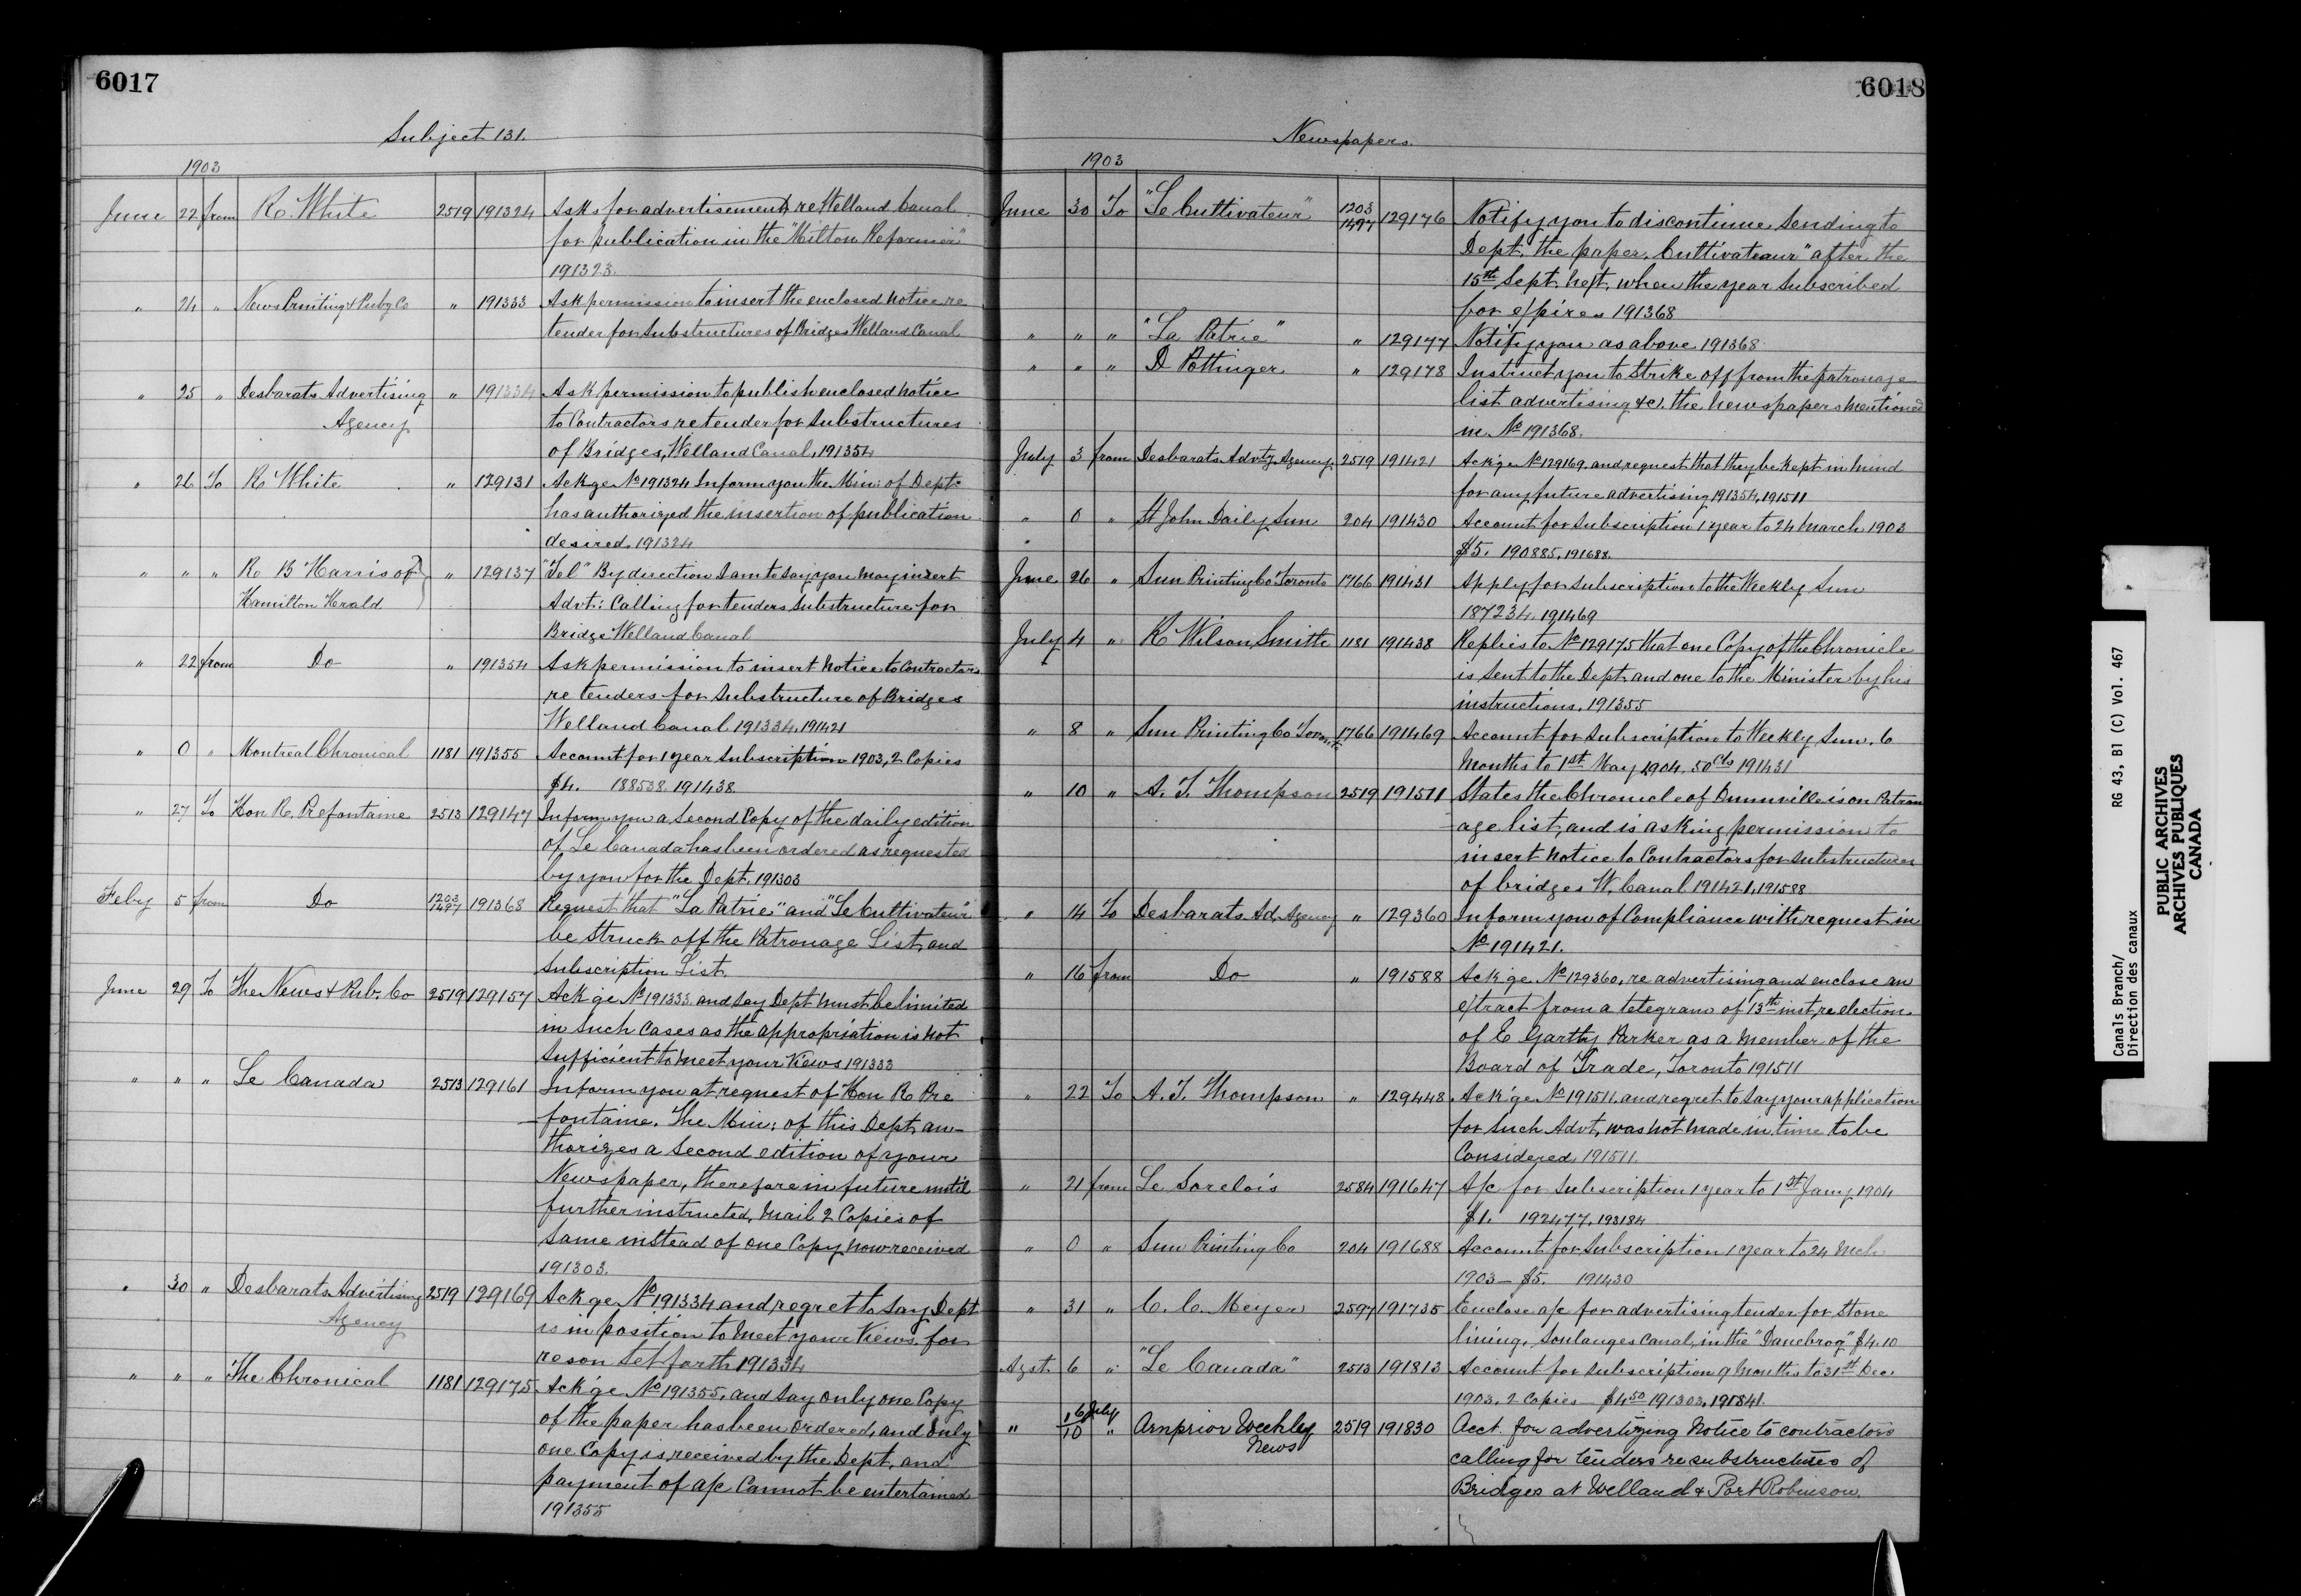 6017
Subject 131.
1903
June 22 from R. White 2519 191324 Asks for advertisement, re Welland Canal
for publication in the "Milton Reformer"
191323.
" 24 " News Printing & Pubg Co " 191333 Ask permission to insert the enclosed notice re
tender for Substructures of Bridges Welland Canal
" 25 " Desbarats Advertising " 191334 Ask permission to publish enclosed notice
Agency to Contractors re tender for Substructures
of Bridges, Welland Canal, 191354
" 26 To R White " 129131 Ackge No 191324 Inform you the Min: of Dept.
has authorized the insertion of publication
desired. 191324
" " " R B Harris of " 129137 "Tel" By direction I am to say you may insert
Hamilton Herald Advt: Calling for tenders Substructure for
Bridge Welland Canal
" 22 from Do " 191354 Ask permission to insert Notice to Contractors
re tenders for Substructure of Bridges
Welland Canal 191334, 191421
" 0 " Montreal Chronical 1181 191355 Account for 1 year Subscription 1903, 2 Copies
$4. 188538. 191438
" 27 To Hon R. Prefontaine 2513 129147 Inform you a Second Copy of the daily edition
of Le Canada has been ordered as requested
by you for the Dept. 191303
Feby 5 from Do 1203 1497 191368 Request that "La Patrie" and "Le Cultivateur"
be Struck off the Patronage List, and
Subscription List.
June 29 To The News & Pub. Co 2519 129157 Ack'ge No 191333 and say Dept. must be limited
in such cases as the appropriation is not
sufficient to meet your views 191333
" " " Le Canada 2513 129161 Inform you at request of Hon R Pre
fontaine. The Min: of this Dept, au-
thorizes a Second edition of your
Newspaper, therefore in future until
further instructed, Mail 2 Copies of
Same instead of one Copy now received
191303.
" 30 " Desbarats Advertising 2519 129169 Ackge No 191334 and regret to say Dept
Agency is in position to meet your views. for
reson set forth 191334
" " " The Chronical 1181 129175 Ack'ge No 191355, and say only one Copy
of the paper has been ordered, and only
one Copy is received by the Dept, and
payment of a/c Cannot be entertained
191355
6018
Newspapers.
1903
June 30 To "Le Cultivateur" 1203 1497 129176 Notify you to discontinue sending to
Dept. the paper. Cultivateaur" after the
15th Sept. next, when the year subscribed
for expires 191368
" " " "La Patrie" " 129177 Notify you as above 191368
" " " D Pottinger " 129178 Instruct you to Strike off from the patronage
list advertising &c. the newspapers mentioned
in No 191368.
July 3 from Desbarats Advtg Agency 2519 191421 Ack'ge No 129169. and request that they be kept in mind
for any future advertising 191354, 191511
" 0 " St John Daily Sun 204 191430 Account for Subscription 1 year to 24 March 1903
$5. 190885, 191688.
June 26 " Sun Printing Co Toronto 1766 191431 Apply for Subscription to the Weekly Sun
187234. 191469
July 4 " R Wilson Smith 1181 191438 Replies to No 129175 that one Copy of the Chronicle
is sent to the Dept. and one to the Minister by his
instructions, 191355
" 8 " Sun Printing Co Toronto 1766 191469 Account for Subscription to Weekly Sun. 6
Months to 1st May 1904. 50 cts 191431
" 10 " A. T. Thompson 2519 191511 States the Chronicle of Dunnville is on Patron
age list, and is asking permission to
insert notice to Contractors for Substructures
of bridges W. Canal 191421, 191588
" 14 To Desbarats Ad, Agency " 129360 Inform you of Compliance with request in
No 191421.
" 16 from Do " 191588 Ack'ge No 129360, re advertising and enclose an
extract from a telegram of 13th inst, re election
of E Garthy Parker as a member of the
Board of Trade, Toronto 191511
" 22 To A. T. Thompson " 129448 Ack'ge No 191511. and regret to say your application
for such Advt, was not made in time to be
Considered, 191511.
" 21 from Le Sorelois 2584 191647 A/c for Subscription 1 year to 1st Jany 1904
$1. 192477, 193184
" 0 " Sun Printing Co 204 191688 Account for Subscription 1 year to 24 Mch
1903 - $5. 191430
" 31 " C. C. Meyer 2597 191735 Enclose a/c for advertising tender for Stone
lining, Soulanges Canal, in the "Danebrog" $4.10
Agst. 6 " "Le Canada" 2513 191813 Account for Subscription 9 Months to 31st Dec.
1903. 2 Copies $4.50 191303, 191841.
" 16 July 10 " Arnprior Weekly 2519 191830 Acct. for advertizing Notice to contractors
News calling for tenders re substructures of
Bridges at Welland & Port Robinson.
Canals Branch/ RG 43, B1 (C) Vol. 467
Direction des canaux
PUBLIC ARCHIVES
ARCHIVES PUBLIQUES
CANADA